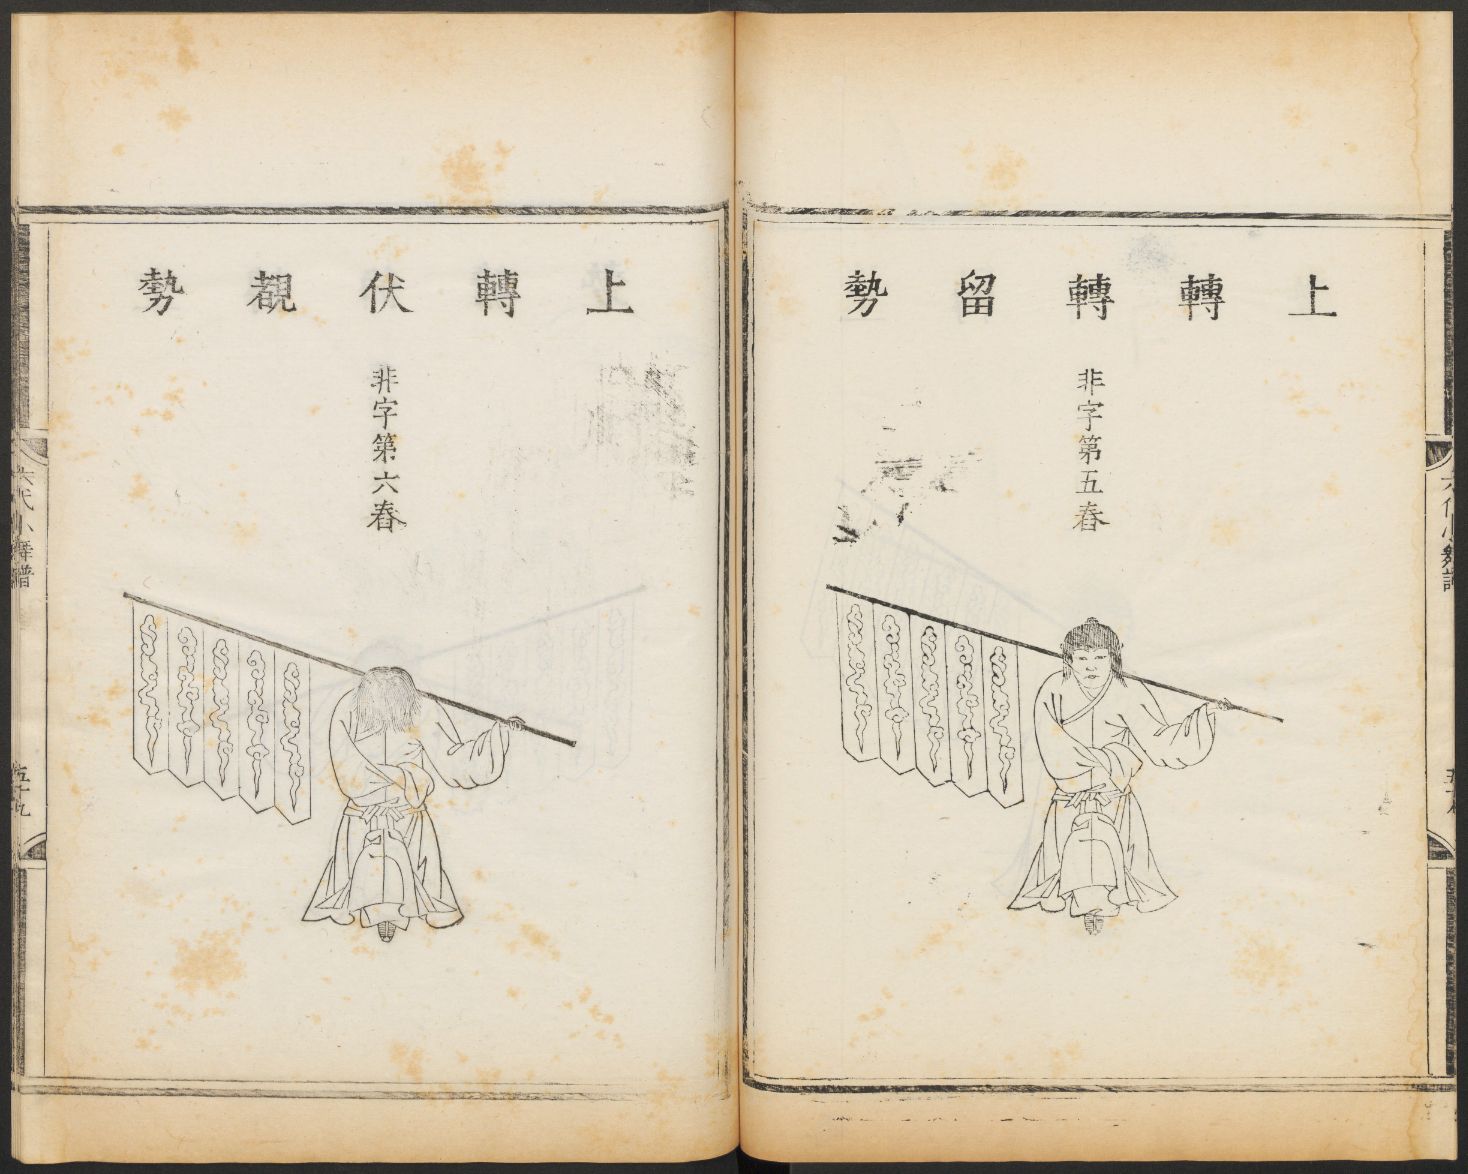 上轉轉留勢
非字第五舂
六代小舞譜
上轉伏覩勢
非字第六舂
六代小舞譜
五十九